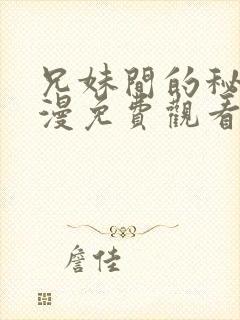 兄妹間的秘
漫免費觀看
詹佳